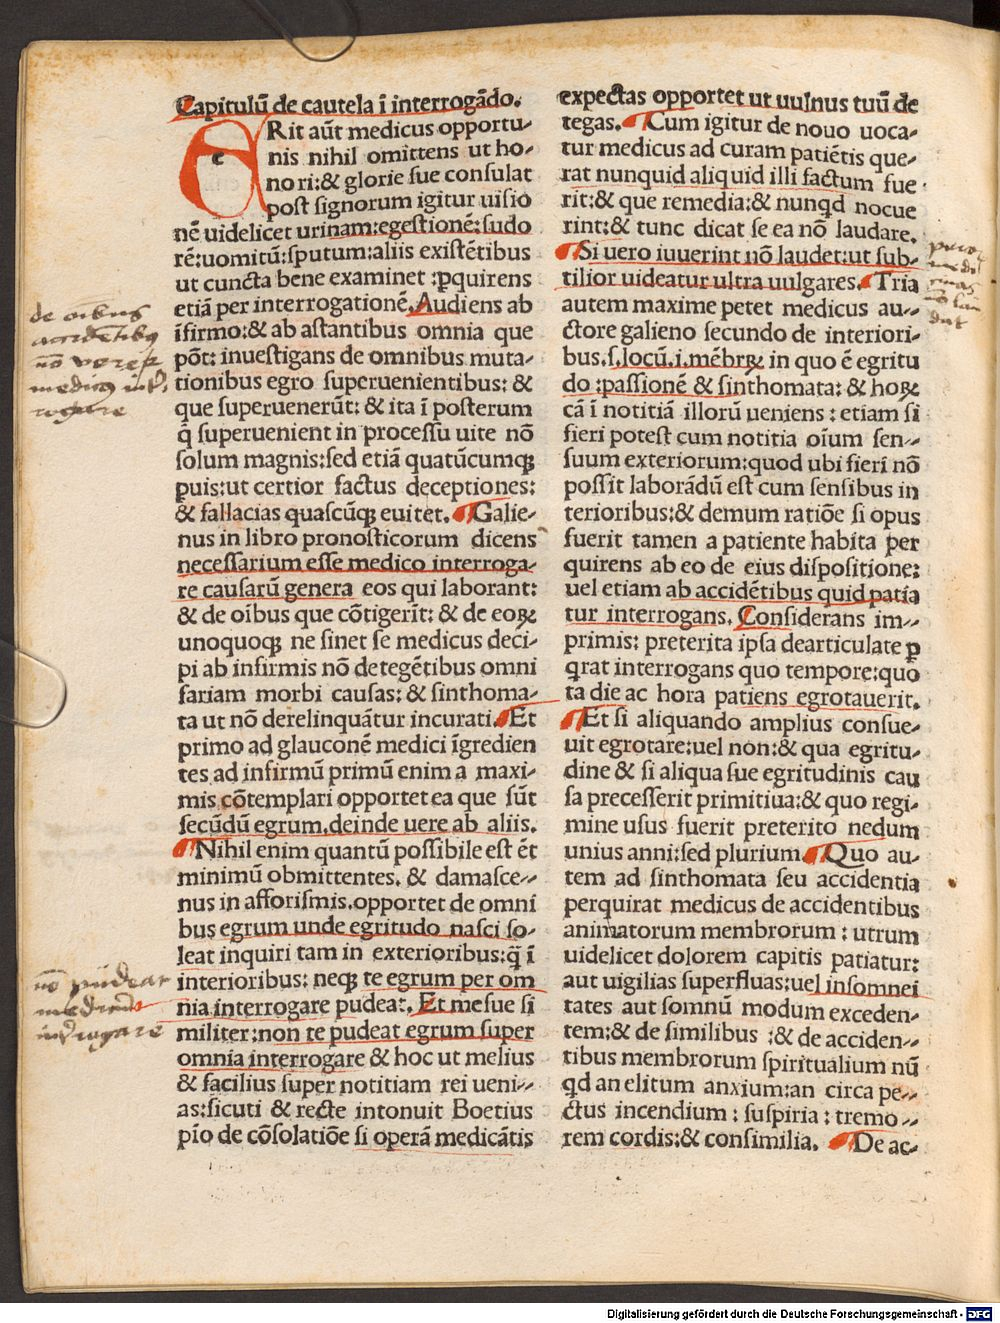 Capitulū de cautela ī interrogādo.
ERit aūt medicus opportu-
nis nihil omittens ut ho-
nori:& glorie sue consulat
post signorum igitur uisio
nē uidelicet urinam:egestionē:sudo
rē:uomitū:sputum:aliis existētibus
ut cuncta bene examinet :ꝑquirens
etiā per interrogationē.Audiens ab
īfirmo:& ab astantibus omnia que
pōt: inuestigans de omnibus muta-
tionibus egro superuenientibus: &
que superuenerūt: & ita ī posterum
q̄ superuenient in processu uite nō
solum magnis:sed etiā quatūcumqꝫ
puis:ut certior factus deceptiones:
& fallacias quascūqꝫ euitet. Galie-
nus in libro pronosticorum dicens
necessarium esse medico interroga-
re causarū genera eos qui laborant:
& de oībus que cōtigerīt: & de eoꝝ
unoquoqꝫ ne sinet se medicus deci-
pi ab infirmis nō detegētibus omni
fariam morbi causas: & sinthoma-
ta ut nō derelinquātur incurati. Et
primo ad glauconē medici īgredien
tes ad infirmū primū enim a maxi-
mis cōtemplari opportet ea que sūt
secūdū egrum.deinde uere ab aliis.
Nihil enim quantū possibile est ēt
minimū obmittentes. & damasce-
nus in afforismis.opportet de omni
bus egrum unde egritudo nasci so-
leat inquiri tam in exterioribus:q̄ ī
interioribus: neqꝫ te egrum per om
nia interrogare pudeat. Et mesue si
militer:non te pudeat egrum super
omnia interrogare & hoc ut melius
& facilius super notitiam rei ueni-
as:sicuti & recte intonuit Boetius
pīo de cōsolatiōe si operā medicātis
expectas opportet ut uulnus tuū de
tegas. Cum igitur de nouo uoca-
tur medicus ad curam patiētis que-
rat nunquid aliquid illi factum fue
rit:& que remedia:& nunqd nocue
rint:& tunc dicat se ea nō laudare.
Si uero iuuerint nō laudet:ut sub-
tilior uideatur ultra uulgares. Tria
autem maxime petet medicus au-
ctore galieno secundo de interiori-
bus.s.locū.i.mēbrꝝ in quo ē egritu
do :passionē & sinthomata: & hoꝝ
cā ī notitiā illorū ueniens : etiam si
fieri potest cum notitia oīum sen-
suum exteriorum:quod ubi fieri nō
possit laborādū est cum sensibus in
terioribus:& demum ratiōe si opus
fuerit tamen a patiente habita per
quirens ab eo de eius dispositione:
uel etiam ab accidētibus quid patia
tur interrogans. Considerans im-
primis: preterita ipsa dearticulate ꝑ
qrat interrogans quo tempore:quo
ta die ac hora patiens egrotauerit.
Et si aliquando amplius consue-
uit egrotare:uel non:& qua egritu-
dine & si aliqua sue egritudinis cau
sa precesserit primitiua:& quo regi-
mine usus fuerit preterito nedum
unius anni:sed plurium. Quo au-
tem ad sinthomata seu accidentia
perquirat medicus de accidentibus
animatorum membrorum : utrum
uidelicet dolorem capitis patiatur:
aut uigilias superfluas:uel insomnei
tates aut somnū modum exceden-
tem:& de similibus :& de acciden-
tibus membrorum spiritualium nū
qd anelitum anxium:an circa pe-
ctus incendium : suspiria : tremo-
rem cordis:& consimilia. De ac-
de oībus
accidētibus
nō
medicus
nō pudeat
medicum
īterrogare
Digitalisierung gefördert durch die Deutsche Forschungsgemeinschaft - DFG